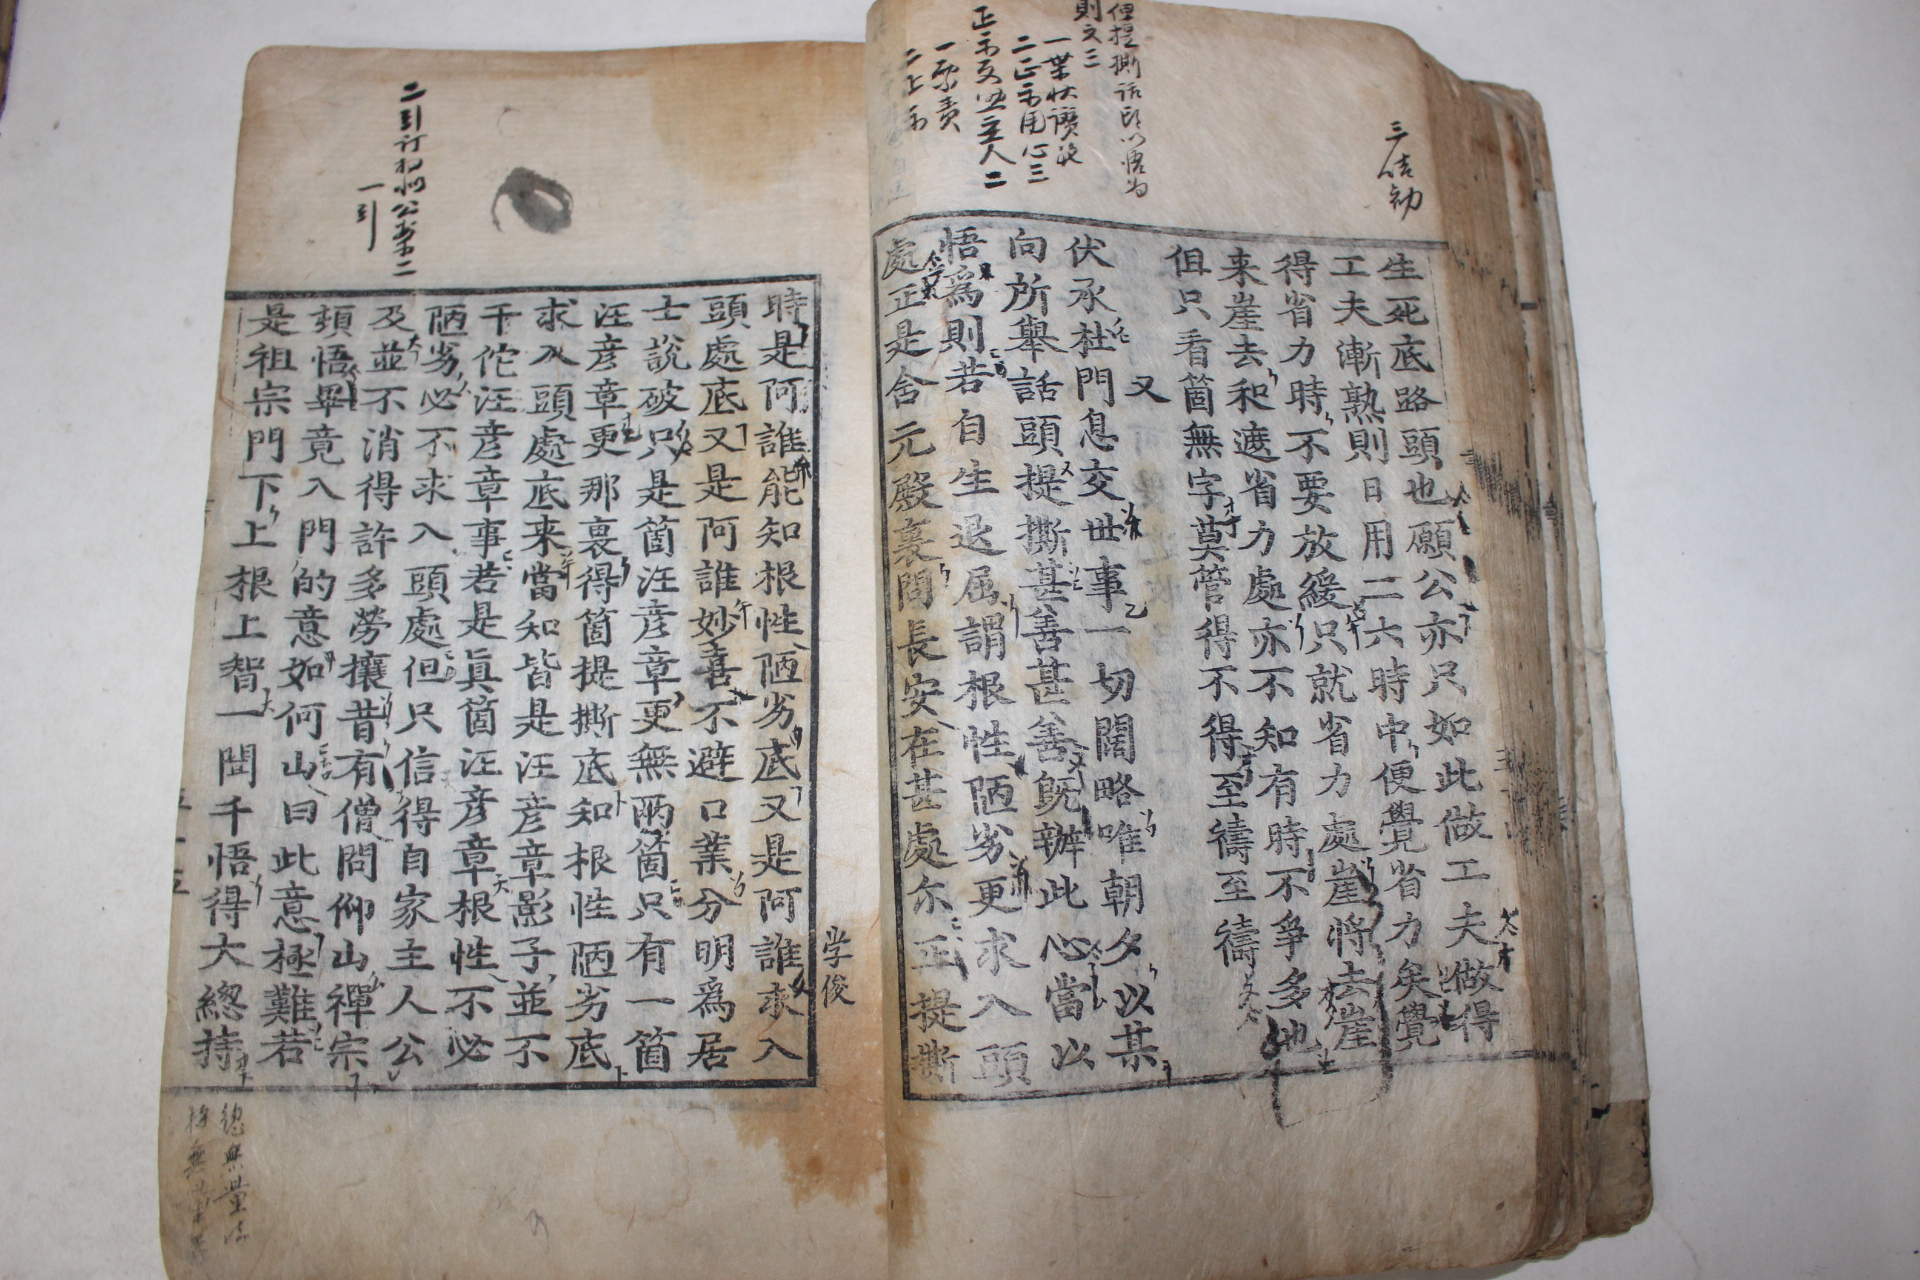 三結勧
但提撕話頭以悟為
則文三
二正示用心三
正示反照主人二
生死底路頭也願公亦只如此做工夫做得
工夫漸熟則日用二六時中便覺省力矣覺
得省力時不要放緩只就省力處崖將去崖
来崖去和遮省力處亦不知有時不爭多也
但只看箇無字莫管得不得至禱至禱
又
伏承杜門息交世事一切闊略唯朝夕以某
向所舉話頭提撕甚善甚善既辦此心當以
悟爲則若自生退屈謂根性陋劣更求入頭
處正是含元殿裏問長安在甚處尓正提撕
学俊
時是阿誰能知根性陋劣底又是阿誰求入
頭處底又是阿誰妙喜不避口業分明爲居
士說破只是箇汪彦章更無兩箇只有一箇
汪彦章更那裏得箇提撕底知根性陋劣底
求入頭處底来當知皆是汪彦章影子並不
干佗汪彦章事若是眞箇汪彦章根性不必
陋劣必不求入頭處但只信得自家主人公
及並不消得許多勞攘昔有僧問仰山禪宗
頓悟畢竟入門的意如何山曰此意極難若
是祖宗門下上根上智一聞千悟得大緫持
一引